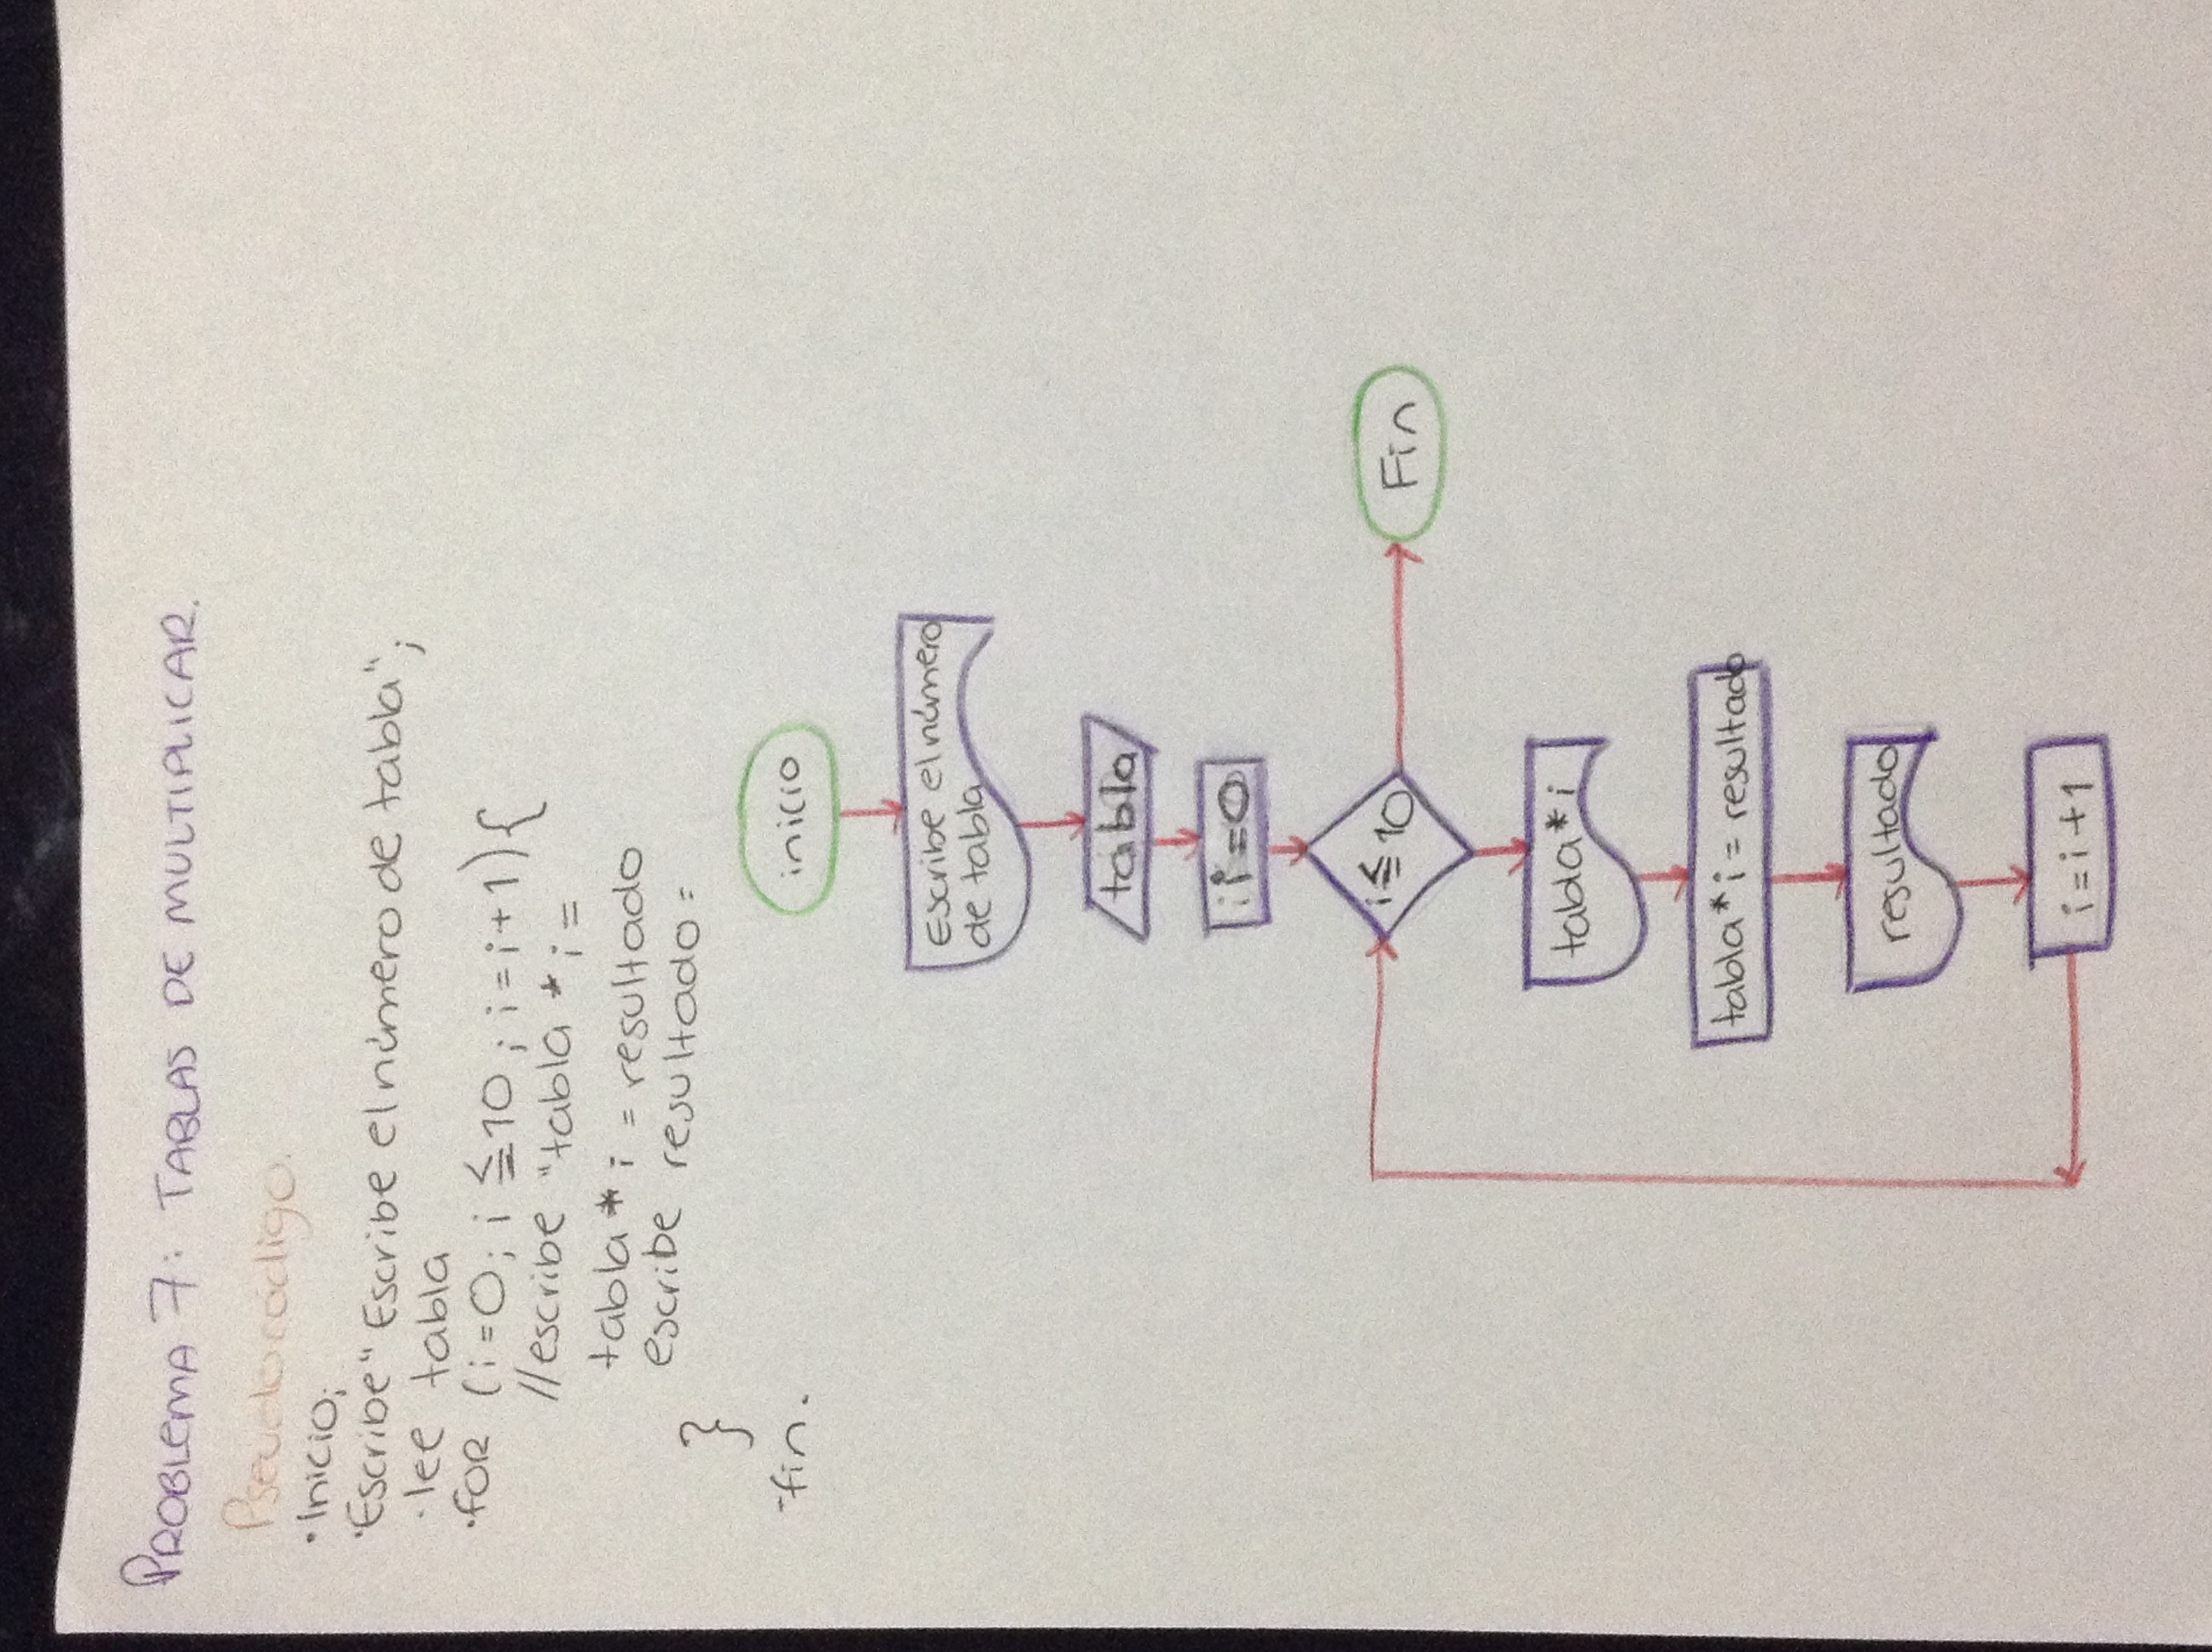 PROBLEMA 7: TABLAS DE MULTIPLICAR.
Pseudocódigo.
·Inicio;
·Escribe" Escribe el número de tabla";
·lee tabla
·FOR (i=0; i ≦10 ; i=i+1){
//escribe "tabla * i =
tabla * i = resultado
escribe resultado =
}
-fin.
inicio
Escribe el número
de tabla
tabla
i=0
i≦10
Fin
tabla*i
tabla*i = resultado
resultado
i=i+1